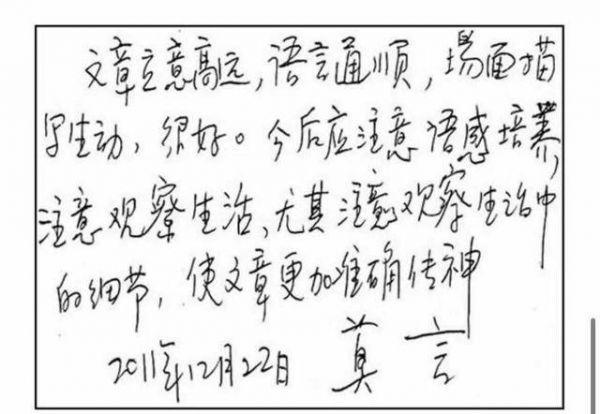 文章立意高远，语言通顺，場面描
写生动，很好。今后应注意语感培养，
注意观察生活、尤其注意观察生活中
的细节，使文章更加准确传神
2011年12月22日 莫言